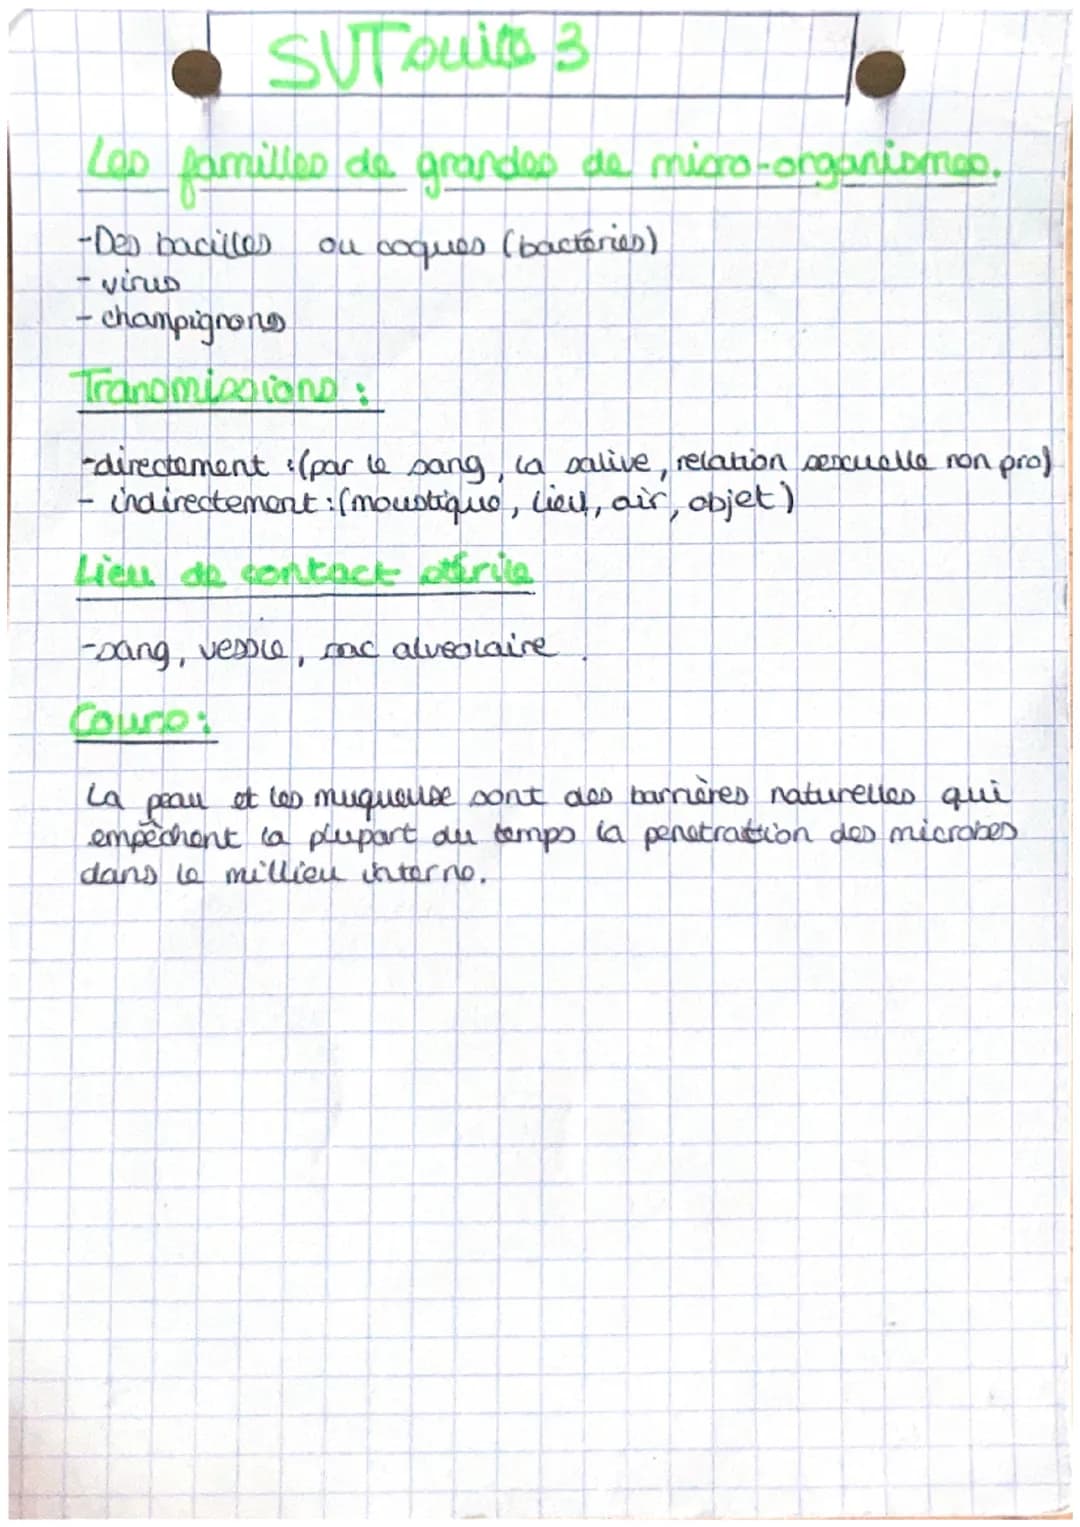 SVT suite 3
Les familles de grandes de micro-organismes.
-Des bacilles ou coques (bactéries)
- virus
- champignons
Transmissions :
-directement :(par le sang, la salive, relation sexuelle non pro)
- indirectement :(moustique, lieu, air, objet)
Lieu de contact stérile
-sang, vessie, sac alveolaire .
Cours :
La peau et les muqueuse sont des barrières naturelles qui
empêchent la plupart du temps la penetrattion des microbes
dans le millieu interne.